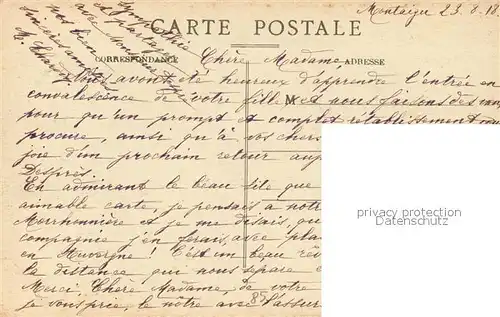 Montaigu 23.8.18
CARTE POSTALE
CORRESPONDANCE
ADRESSE
Chère Madame
Nous avons été heureux d'apprendre l'entrée en
convalescence de votre fille et nous faisons des vœux
M
pour qu'un prompt et complet rétablissement vous
procure, ainsi qu'à vos chers
joie d'un prochain retour
Despres.
En admirant le beau site que
aimable carte, je pensais à notre
et je me disais,
compagnie j'en ferais, avec
en Auvergne! C'est un beau
la distance qui nous sépare
Merci, Chère Madame, de votre
je vous prie, le nôtre avec l'assur
85
privacy protection
Datenschutz